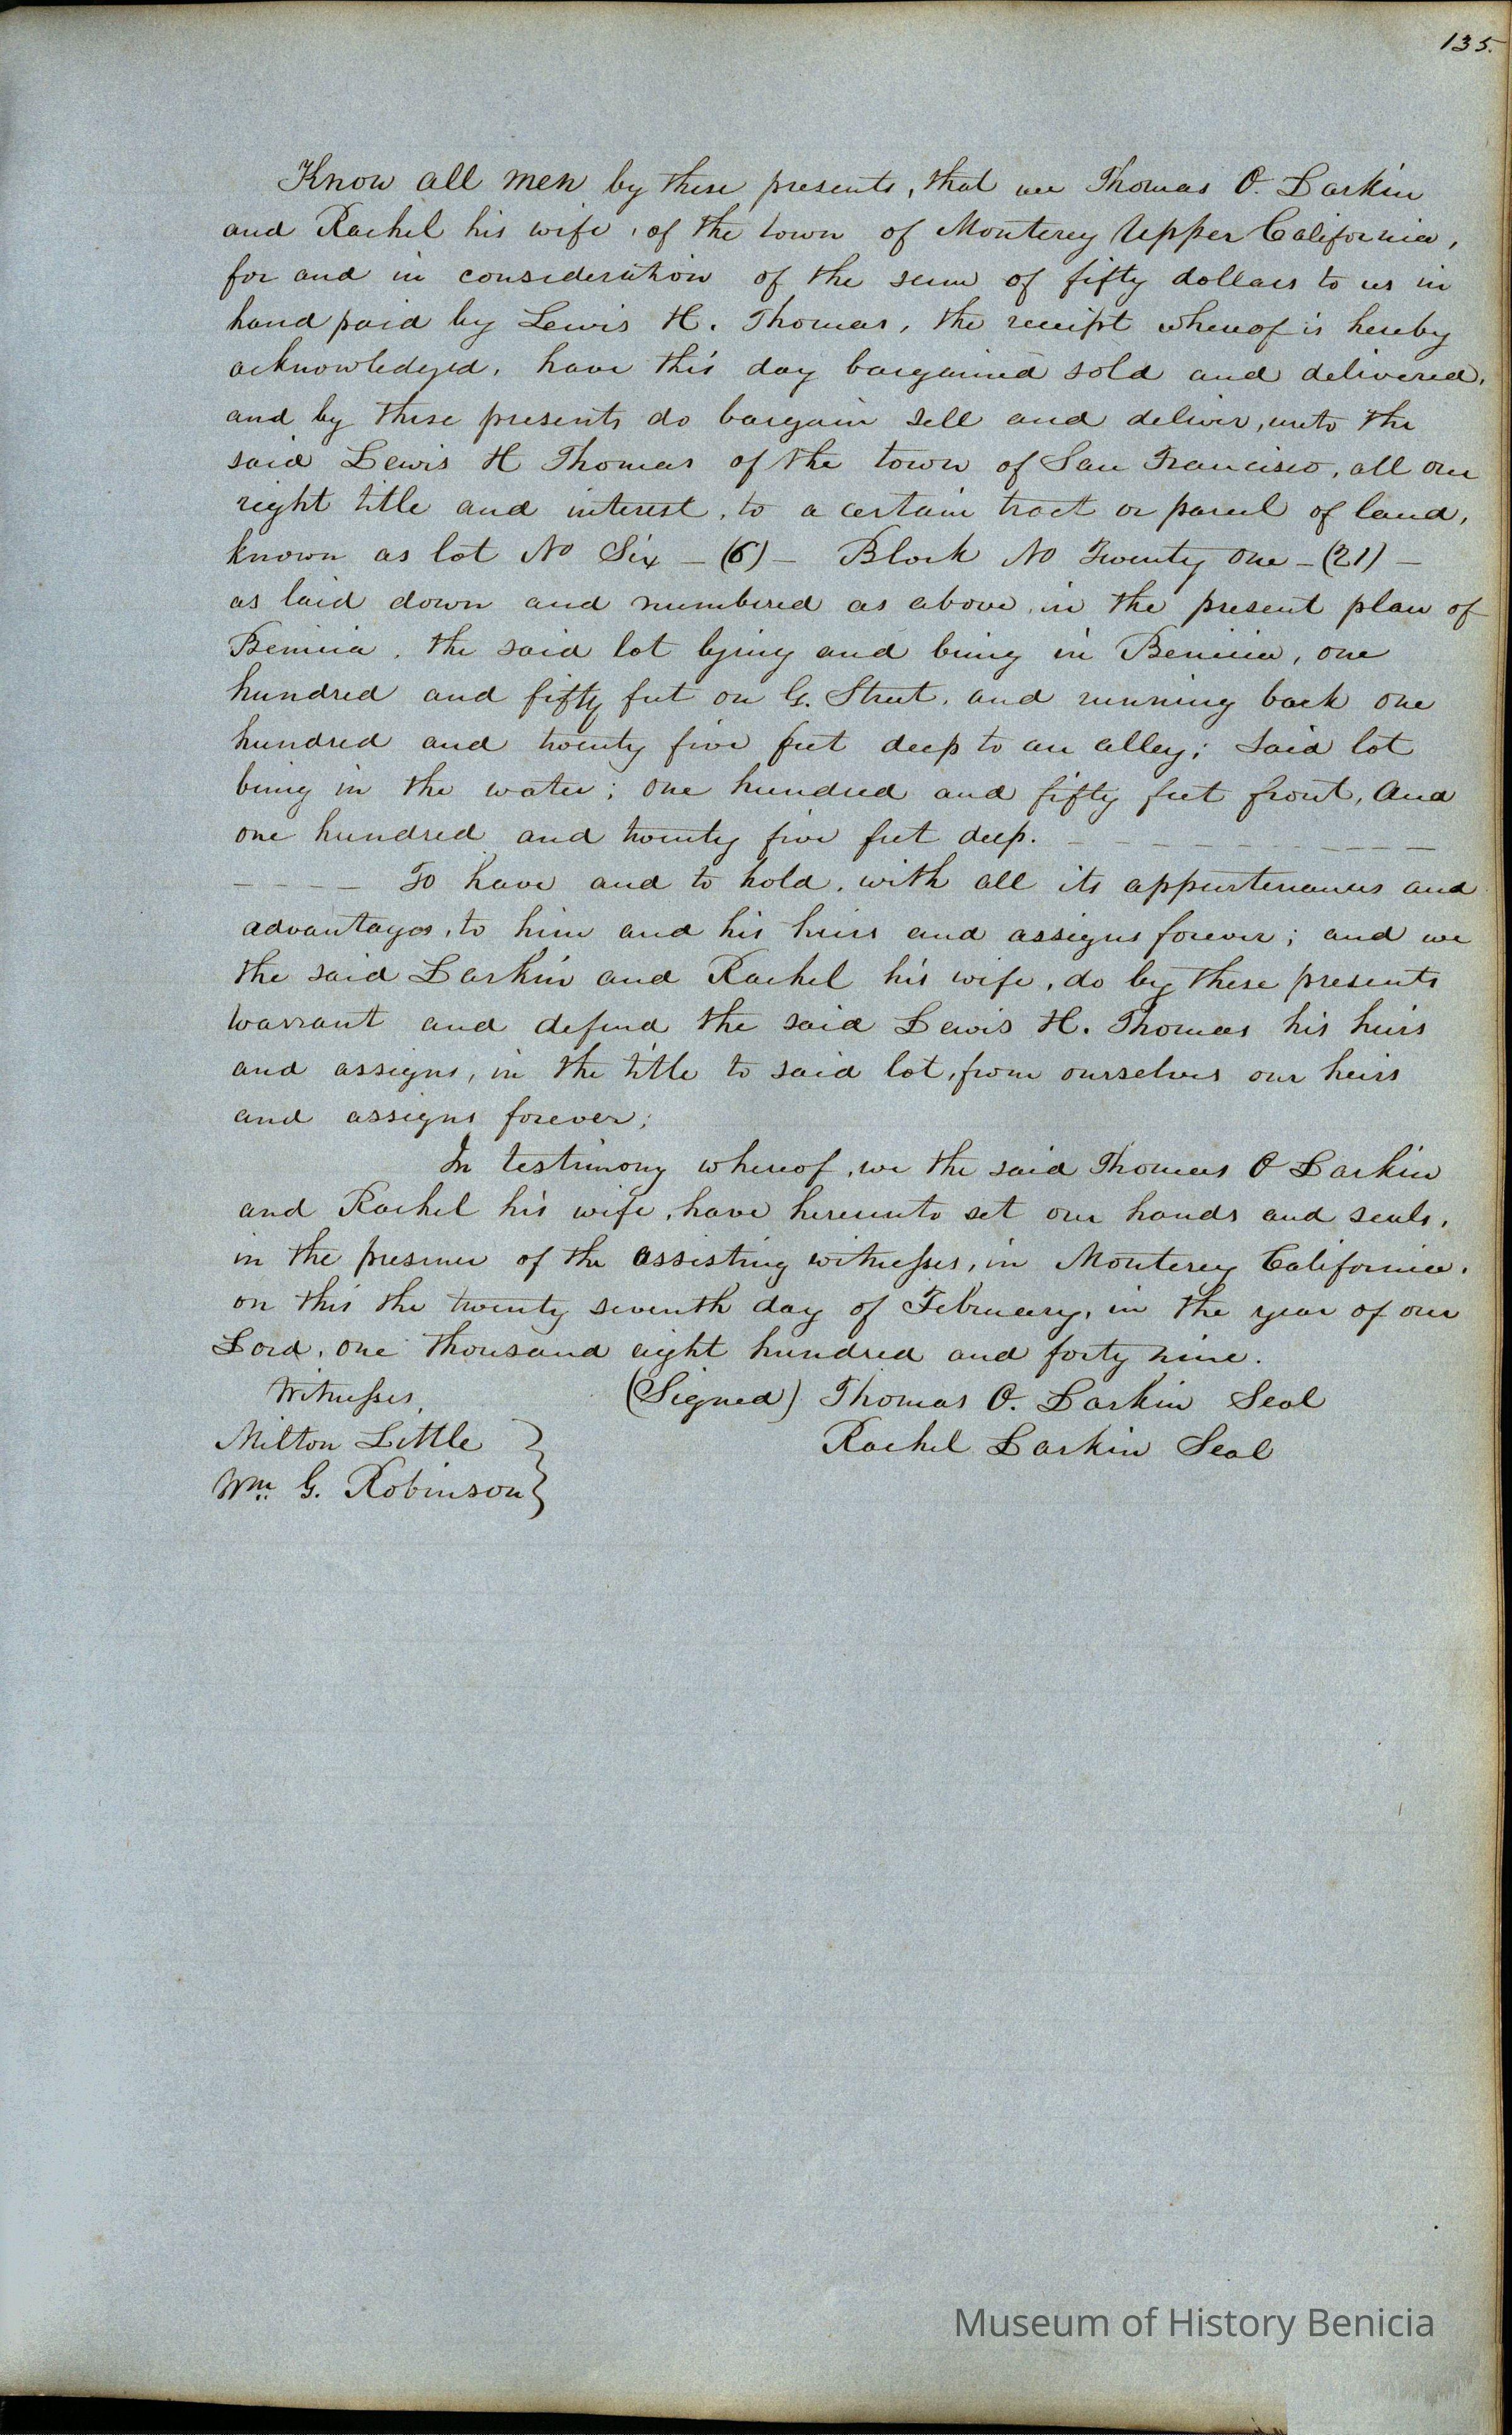 135.
Know all men by these presents, that we Thomas O. Larkin
and Rachel his wife, of the town of Monterey Upper California,
for and in consideration of the sum of fifty dollars to us in
hand paid by Lewis H. Thomas, the receipt whereof is hereby
acknowledged, have this day bargained sold and delivered,
and by these presents do bargain sell and deliver, unto the
said Lewis H Thomas of the town of San Francisco, all our
right title and interest, to a certain tract or parcel of land,
known as lot No Six - (6) - Block No Twenty One - (21) -
as laid down and numbered as above, in the present plan of
Benicia, the said lot lying and being in Benicia, one
hundred and fifty feet on G. Street, and running back one
hundred and twenty five feet deep to an alley; Said lot
being in the water; one hundred and fifty feet front, And
one hundred and twenty five feet deep. - - - - - - - - - -
- - - - To have and to hold, with all its appurtenances and
advantages, to him and his heirs and assigns forever; and we
the said Larkin and Rachel his wife, do by these presents
warrant and defend the said Lewis H. Thomas his heirs
and assigns, in the title to said lot, from ourselves our heirs
and assigns forever;
In testimony whereof, we the said Thomas O Larkin
and Rachel his wife, have hereunto set our hands and seals,
in the presence of the assisting witnesses, in Monterey California,
on this the twenty seventh day of February, in the year of our
Lord, one thousand eight hundred and forty nine.
Witnesses, (Signed) Thomas O. Larkin Seal
Milton Little } Rachel Larkin Seal
Wm. G. Robinson }
Museum of History Benicia